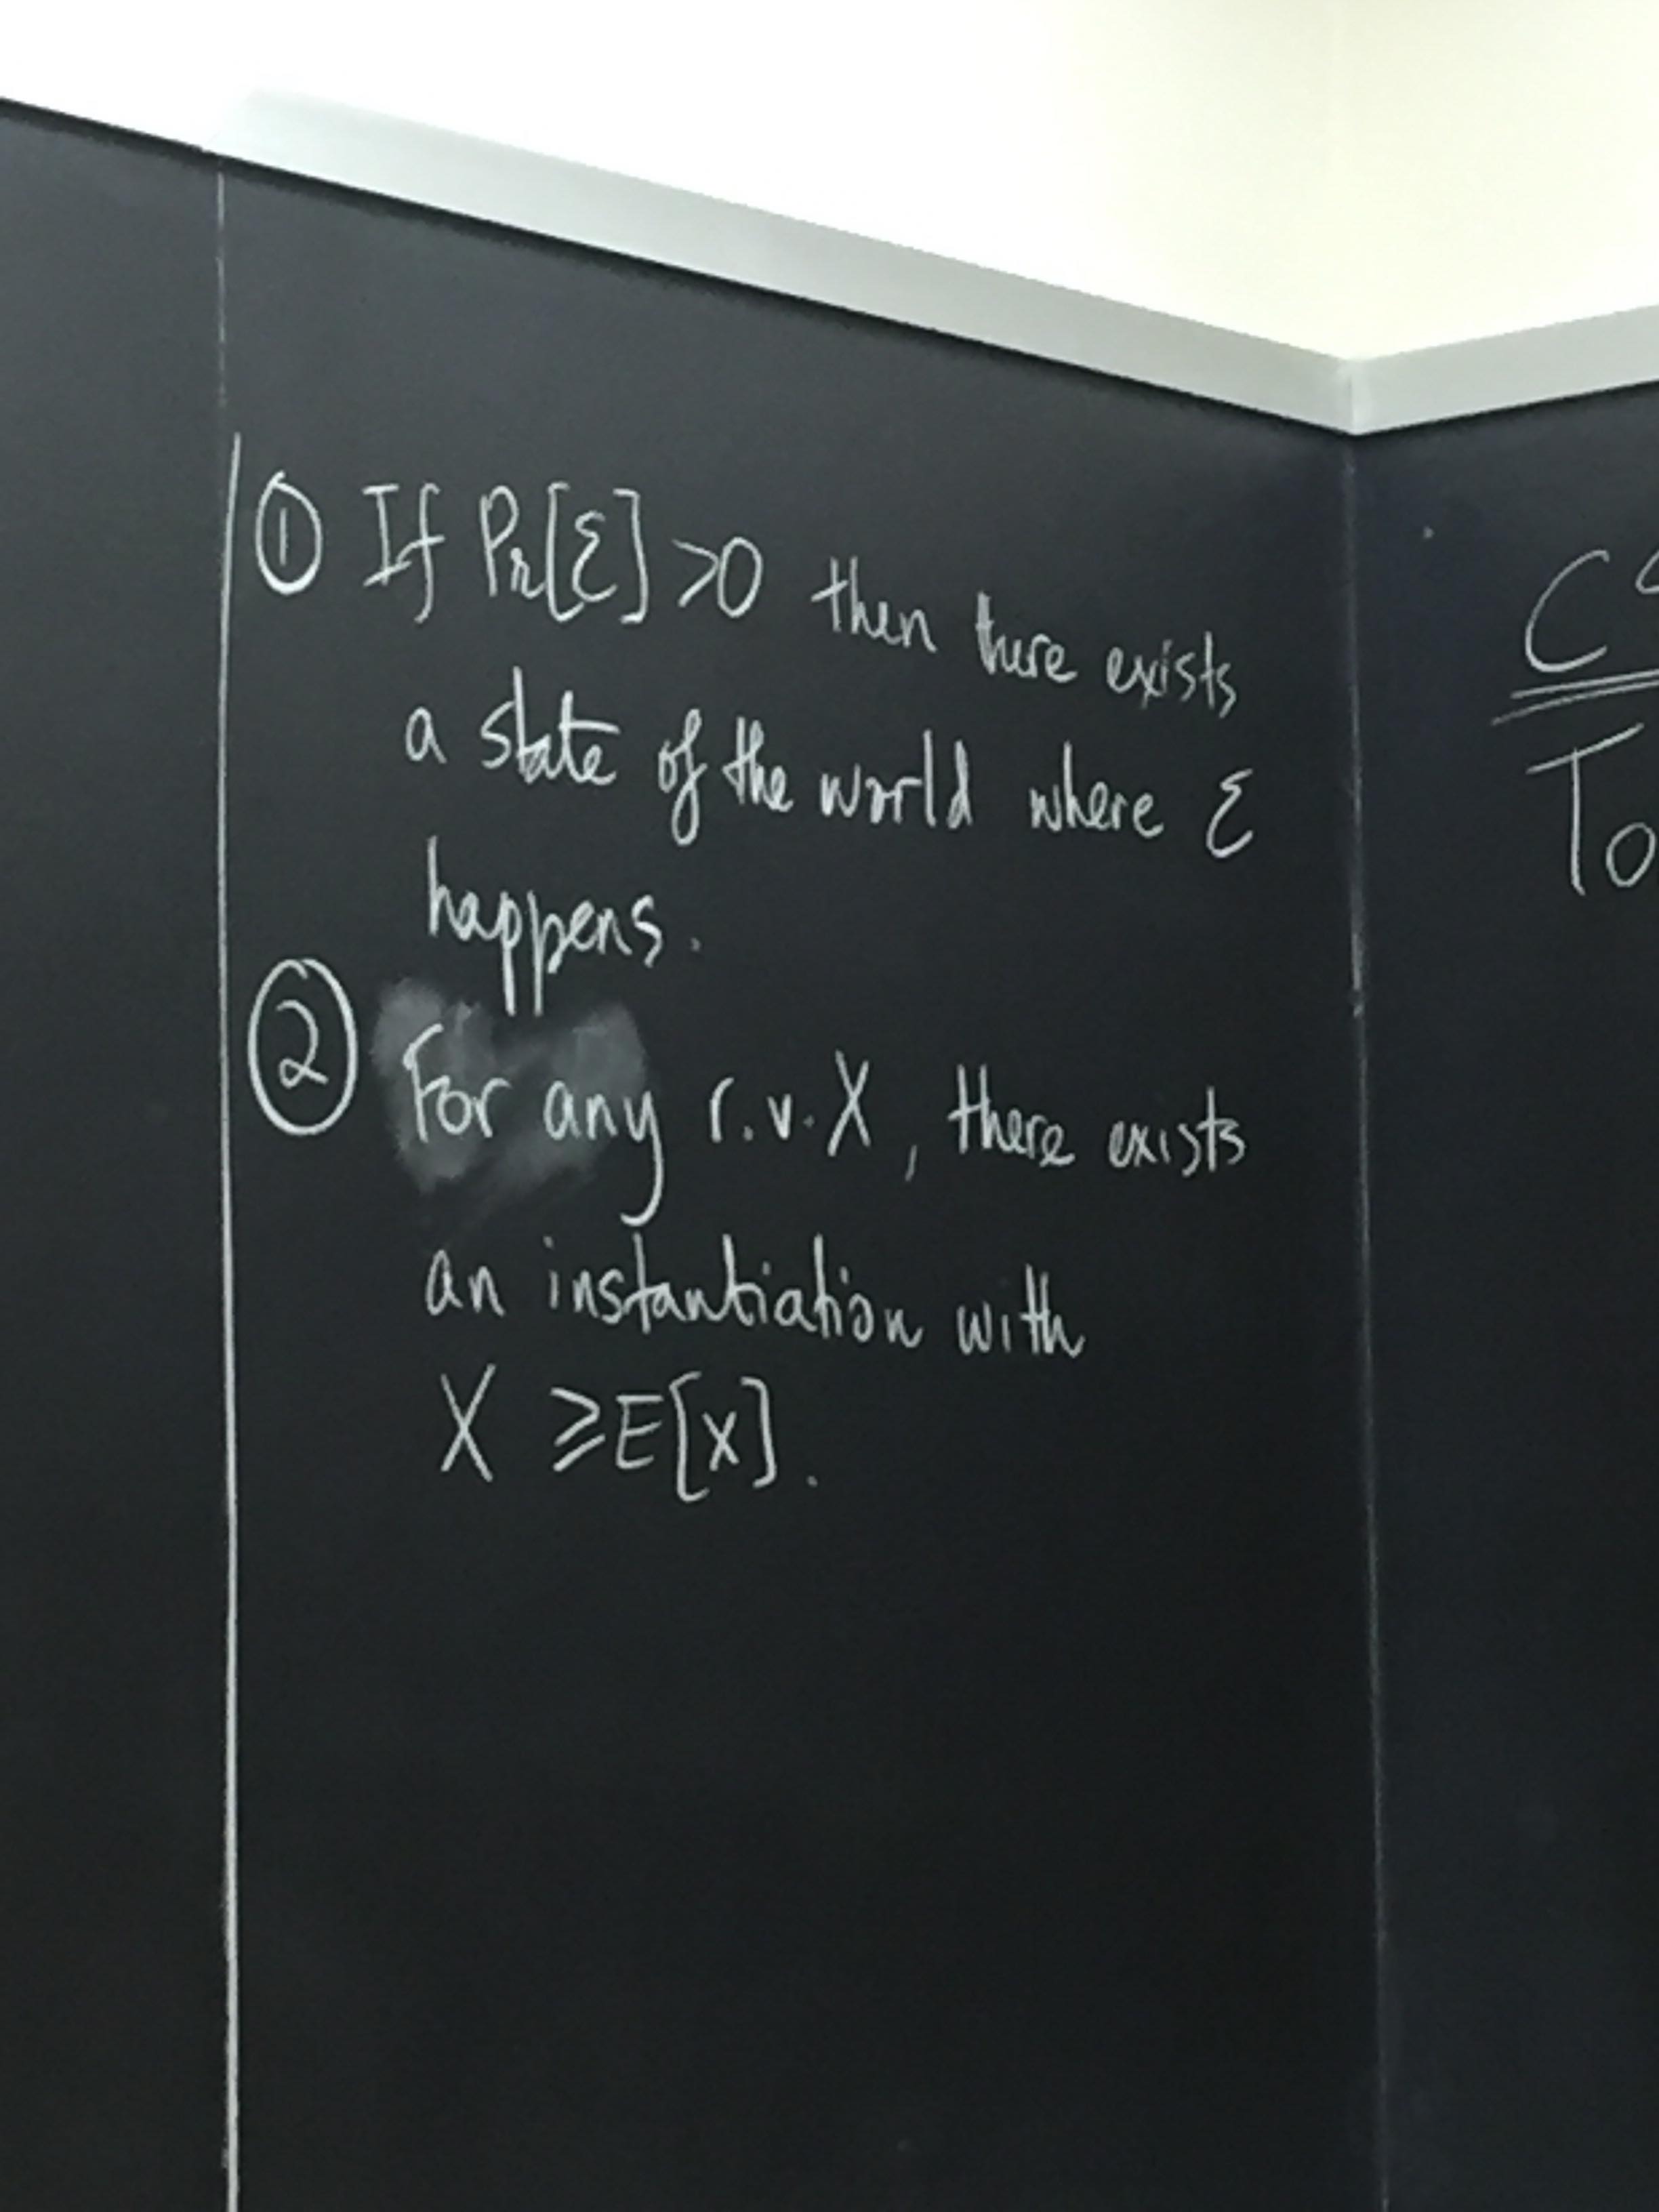 ① If Pr[ξ] >0 then there exists
a state of the world where ξ
happens.
② For any r.v. X, there exists
an instantiation with
X ≥ E[X].
To